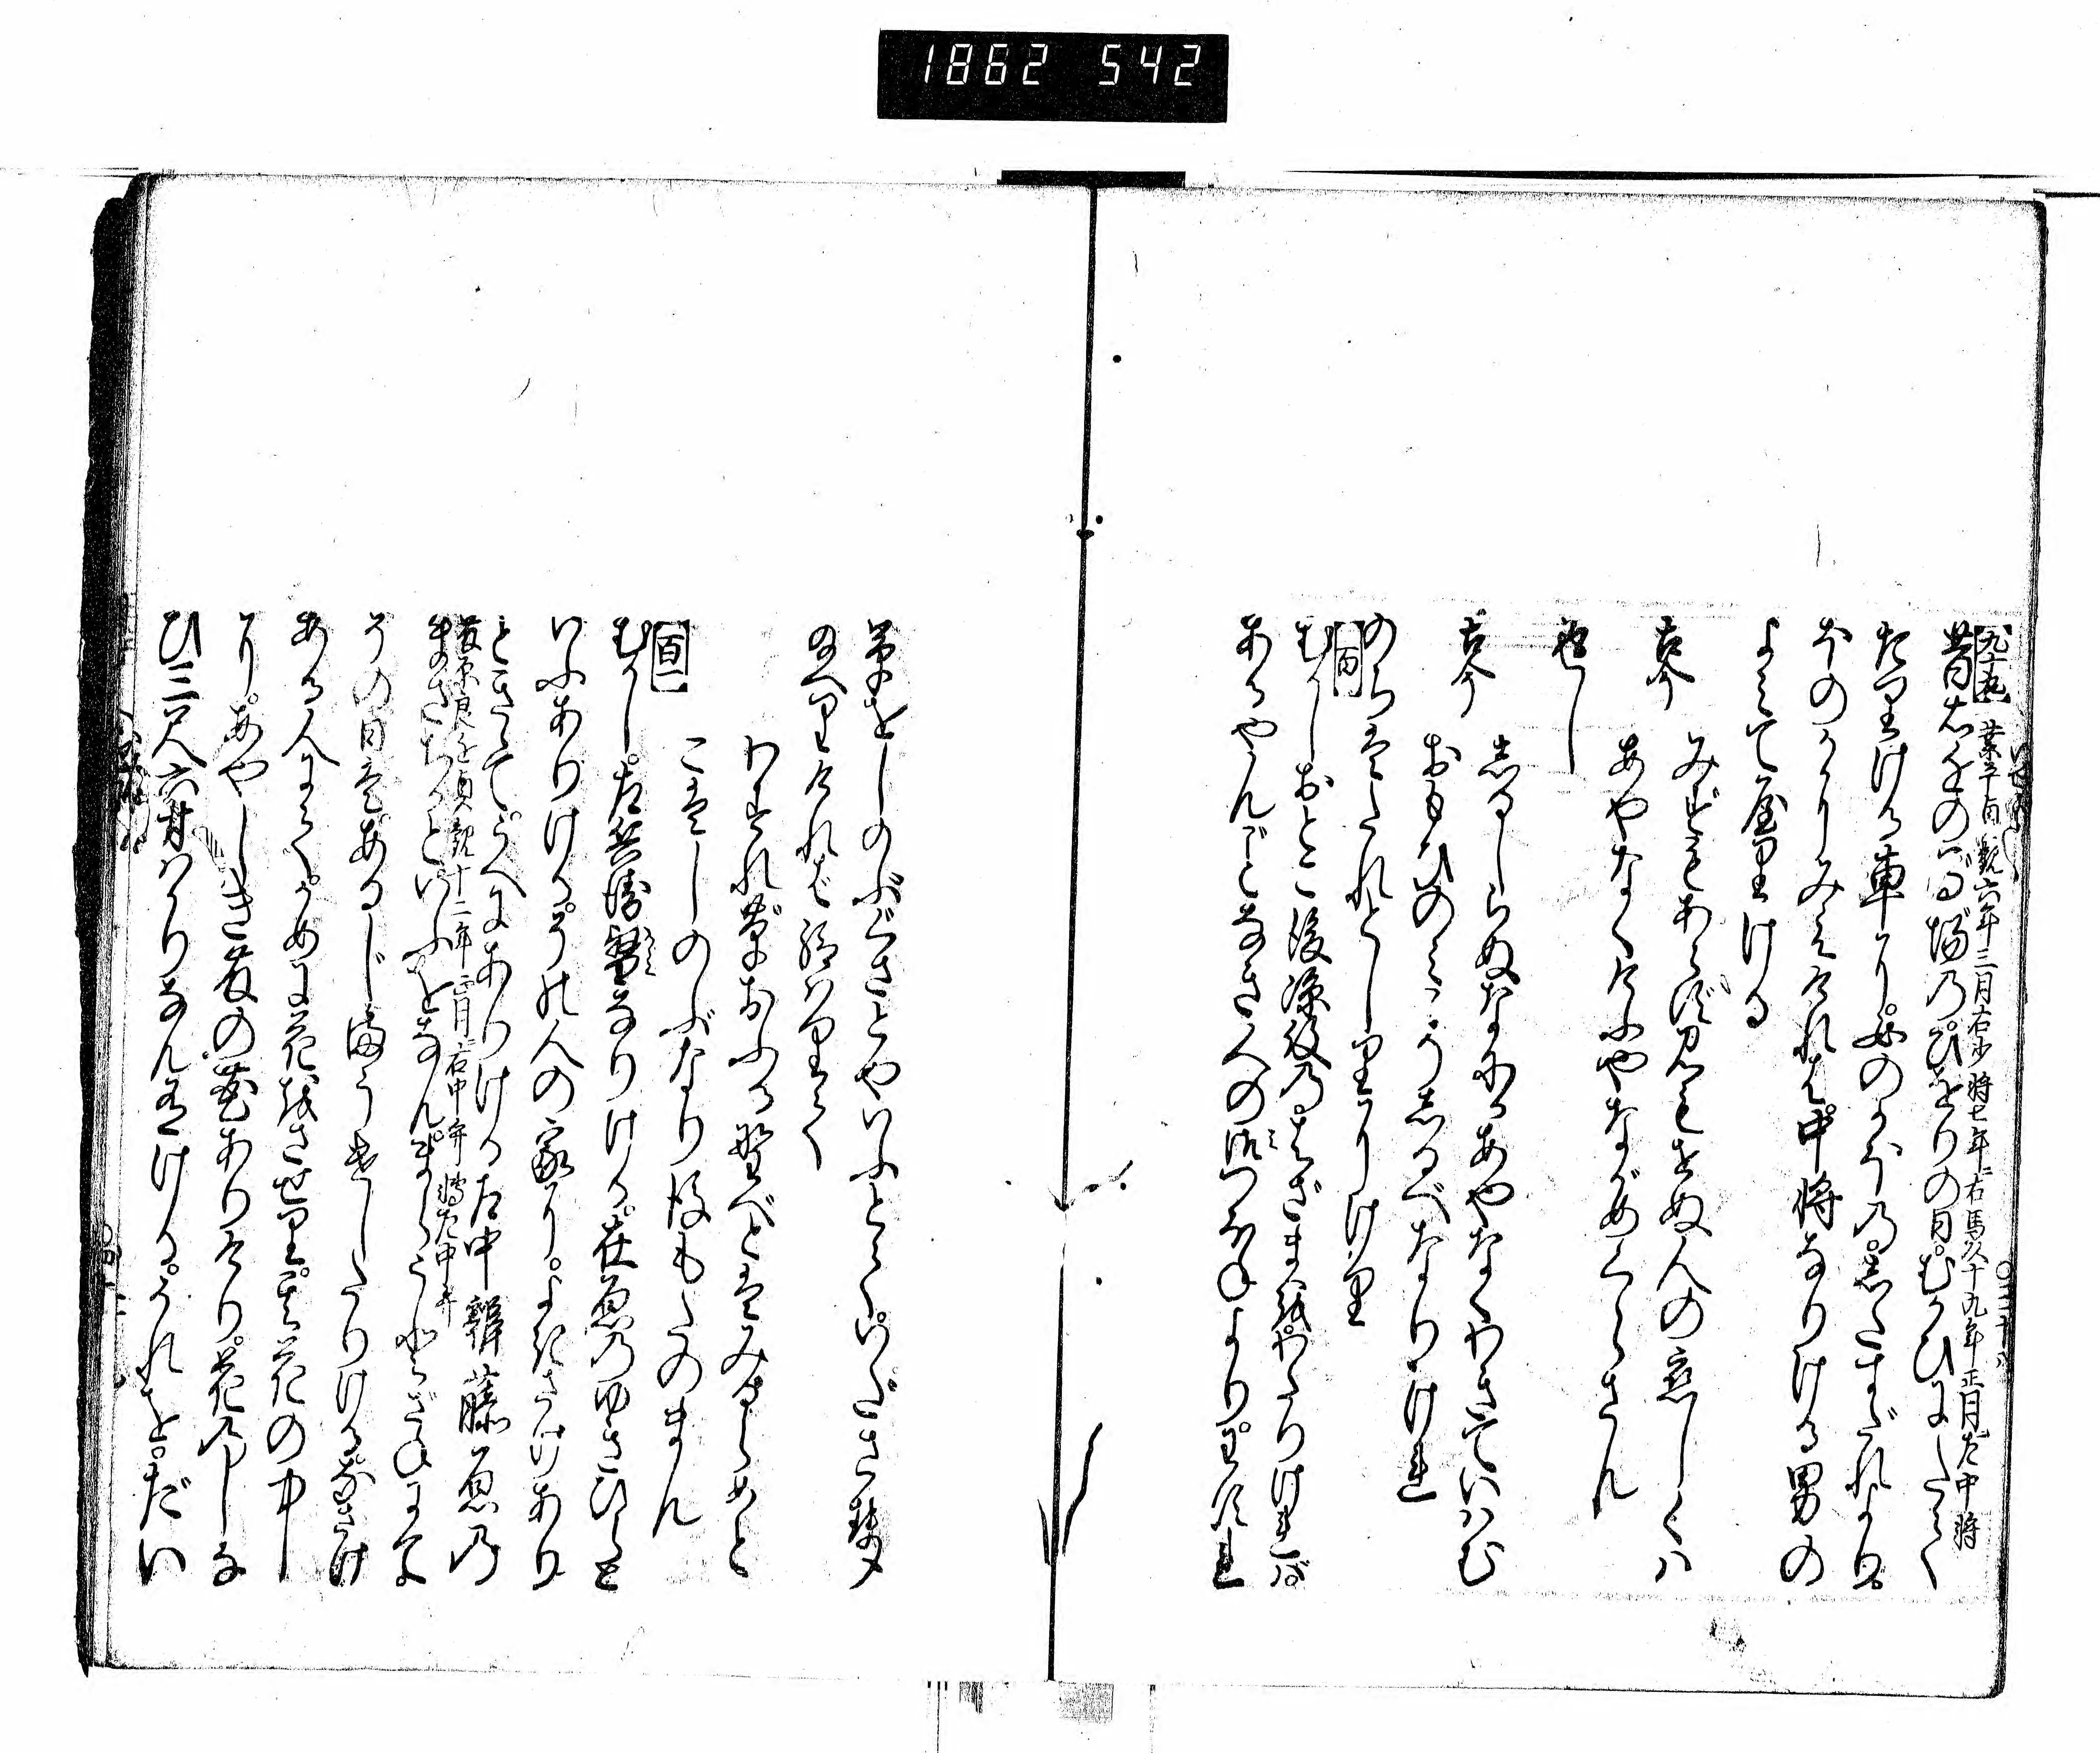 1862 542
【九十九】業平貞観六年三月右少将七年右馬頭十九年正月左中将
昔右近のばゞ乃。ひをりの日。むかひにたて
たりける車に。女のかほ乃。志たすだれより。
ほのかにみえければ。中将なりける男の
よみて屋りける
古今 みずもあらず見もせぬ人の恋しくハ
あやなくけふやながめくらさん
返し
志るしらぬなにかあやなくわきていハむ
古今 おもひのみこそ志るべなりけれ
のちはたれとしりにけり
【百】
むかしおとこ後涼殿乃。はざまを。わたりければ。
あるやんごとなき人の御つぼねより。わすれ
草をしのぶぐさとやいふとて。いださせ
給へりければ給はりて
わすれ草おふる野べとはみるらめど
こはしのぶなり後もたのまん
【百一】
むかし。左兵衛督なりける。在原乃ゆきひらと
いふありける。その人の家に。よきさけあり
ときゝて。うへにありける左中辨藤原乃
藤原良近貞観十二年正月右中弁 轉左中弁
まさちかといふをなん。まらうどざねにて
その日は。あるじまうけしたりける。なさけ
ある人にて。かめに花をさせり。其花の中
に。あやしき藤の花ありけり。花乃しな
ひ三尺六寸バかりなん有ける。それを。だい